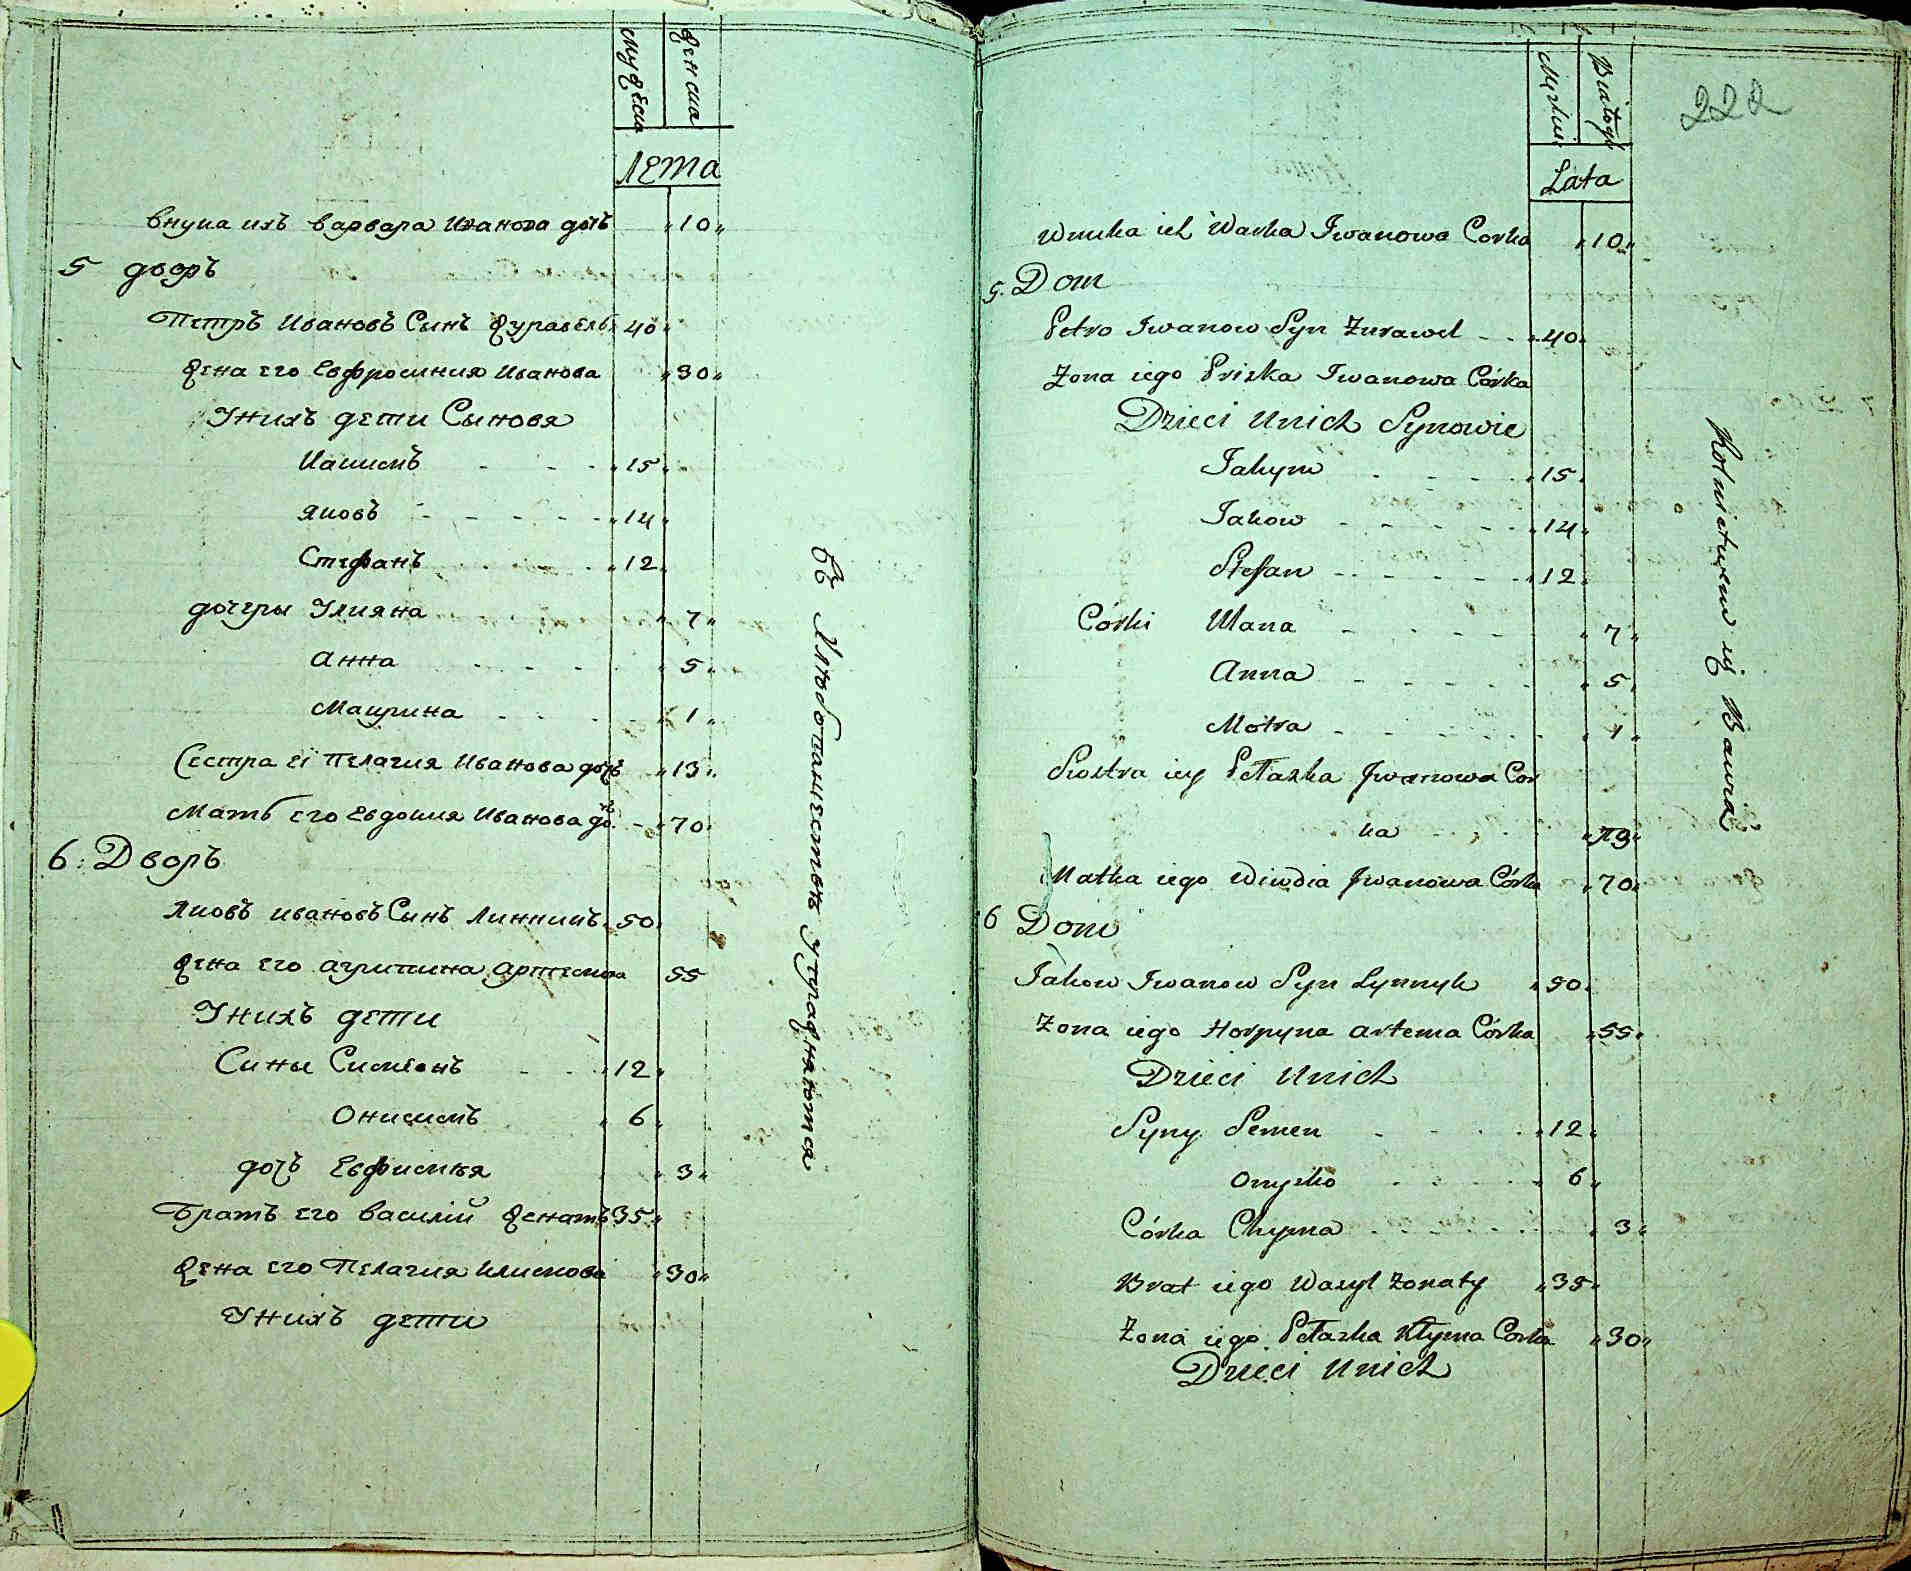 мужеска
женска
Лета
внука ихъ варвара Иванова дочъ „10„
5 дворъ
Петръ Ивановъ Сынъ Журавель „40„
жена его Евфросиния Иванова „30„
Унихъ дети Сыновя
Иакимъ - - - „15„
яковъ - - - - - „14„
Стефанъ - - - „12„
дочеры Улияна „7„
анна - - - - „5„
Матрина - - - - „1„
Сестра еі Пелагия Иванова дочъ „13„
Мать его Евдокия Иванова дочъ - „70„
6: Дворъ
Яковъ ивановъ Сынъ Линникъ „50„
жена его агрипина артемова 55
Унихъ дети
Сины Симеонъ - - „12„
Онисимъ „6„
дочъ Евфимия „3„
Братъ его василій женатъ 35„
жена его Пелагия Климова „30„
Унихъ дети
въ Хлебопашестве упражняются
222
Męzkui
Białogł
Lata
Wnuka ich Warka Iwanowa Corka „10„
5. Dom
Petro Iwanow Syn Zurawel - - „40„
Zona iego Priska Iwanowa Córka
Dzieci Unich Synowie
Jakym - - - - „15„
Jakow - - - - - „14„
Stefan - - - - - „12„
Córki Ulana - - - - - „7„
Anna - - - - - „5„
Motra - - - - - - „1„
Siostra iey Pełazka Jwanowa Cor
ka - - - „13„
Matka iego Wiwdia Jwanowa Córka „70„
6 Dom
Jakow Iwanow Syn Lynnyk „50„
Zona iego Horpyna artema Córka „55„
Dzieci Unich
Syny Semen - - - - „12„
Onyzko - - - - - „6„
Córka Chyma - - - - - - - „3„
Brat iego Wasyl zonaty „35„
Zona iego Pełazka Kłyma Corka „30„
Dzieci Unich
Rolnictwem się Bawią